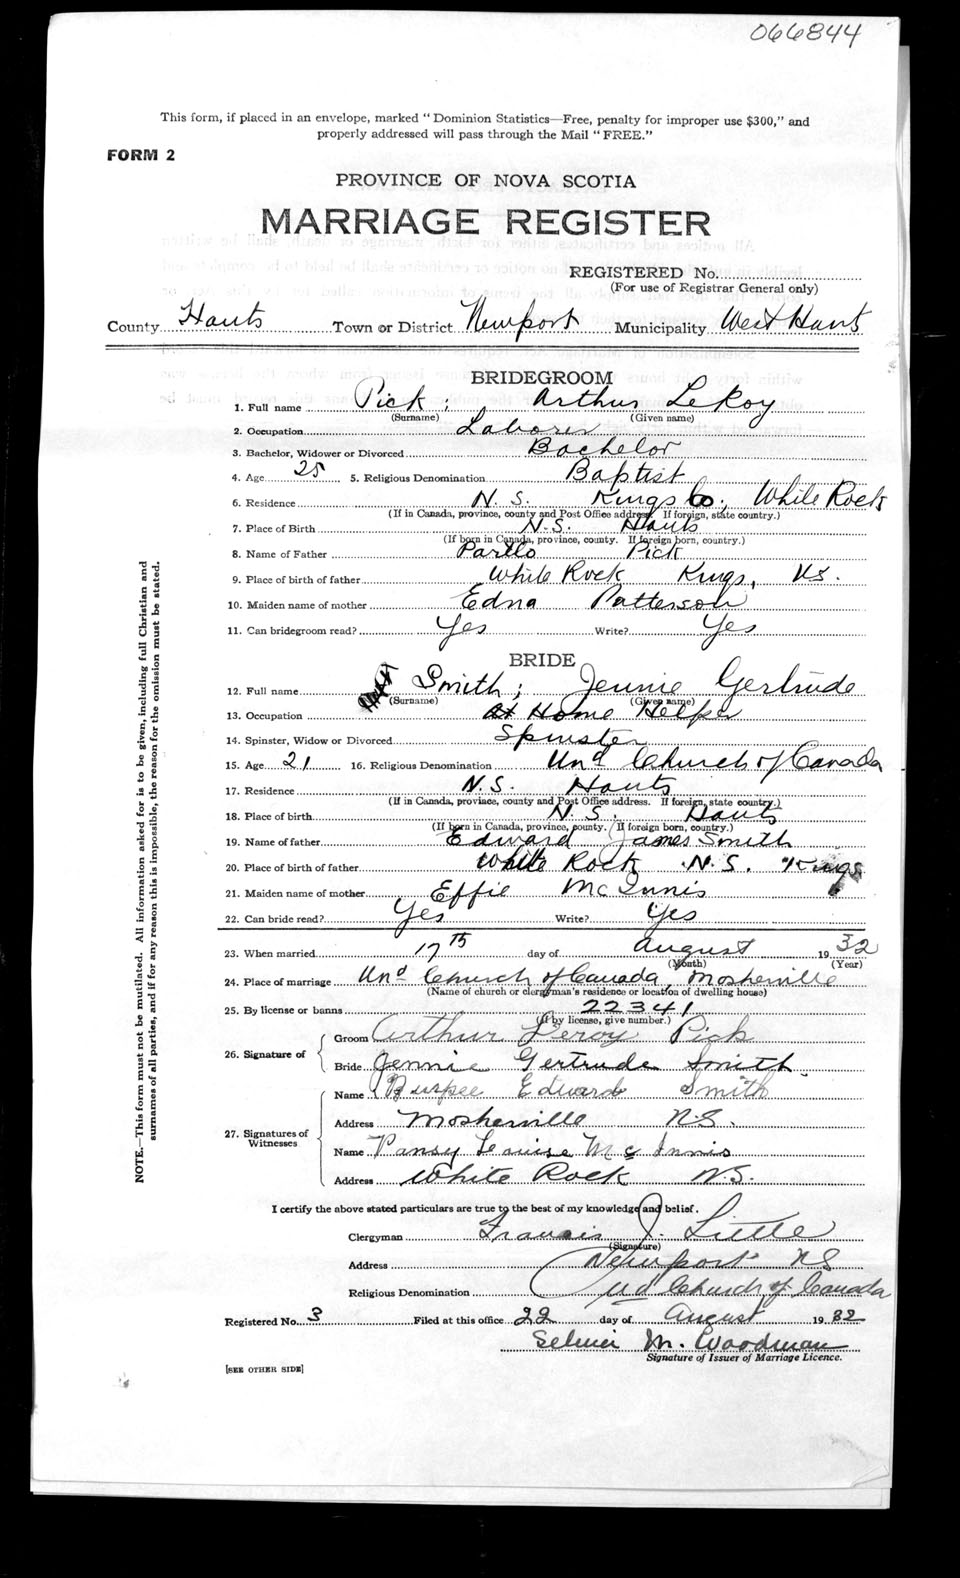 066844
This form, if placed in an envelope, marked "Dominion Statistics—Free, penalty for improper use $300," and
properly addressed will pass through the Mail "FREE."
FORM 2
PROVINCE OF NOVA SCOTIA
MARRIAGE REGISTER
REGISTERED No.
(For use of Registrar General only)
County Hants Town or District Newport Municipality West Hants
BRIDEGROOM
1. Full name Pick, Arthur LeRoy
(Surname) (Given name)
2. Occupation Laborer
3. Bachelor, Widower or Divorced Bachelor
4. Age 25 5. Religious Denomination Baptist
6. Residence N. S. Kings Co, White Rock
(If in Canada, province, county and Post Office address. If foreign, state country.)
7. Place of Birth N.S. Hants
(If born in Canada, province, county. If foreign born, country.)
8. Name of Father Partlo Pick
9. Place of birth of father White Rock Kings, N.S.
10. Maiden name of mother Edna Patterson
11. Can bridegroom read? Yes Write? Yes
BRIDE
12. Full name Smith; Jennie Gertrude
(Surname) (Given name)
13. Occupation At Home Helper
14. Spinster, Widow or Divorced Spinster
15. Age 21 16. Religious Denomination Und Church of Canada
17. Residence N.S. Hants
(If in Canada, province, county and Post Office address. If foreign, state country.)
18. Place of birth N.S. Hants
(If born in Canada, province, county. If foreign born, country.)
19. Name of father Edward James Smith
20. Place of birth of father White Rock N.S. Kings
21. Maiden name of mother Effie McInnis
22. Can bride read? Yes Write? Yes
23. When married 17th day of August 1932
(Month) (Year)
24. Place of marriage Und Church of Canada, Mosherville
(Name of church or clergyman's residence or location of dwelling house)
25. By license or banns 22341
(If by license, give number.)
26. Signature of Groom Arthur Leroy Pick
Bride Jennie Gertrude Smith
27. Signatures of Witnesses Name Burpee Edward Smith
Address Mosherville N.S.
Name Pansy Louise McInnis
Address White Rock N.S.
I certify the above stated particulars are true to the best of my knowledge and belief.
Clergyman Francis J. Little
(Signature)
Address Newport NS
Religious Denomination Und Church of Canada
Registered No. 3 Filed at this office 22 day of August 1932
M. Woodman
Signature of Issuer of Marriage Licence.
[SEE OTHER SIDE]
NOTE.—This form must not be mutilated. All information asked for is to be given, including full Christian and
surnames of all parties, and if for any reason this is impossible, the reason for the omission must be stated.